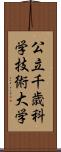 公立千歳科
学技術大学